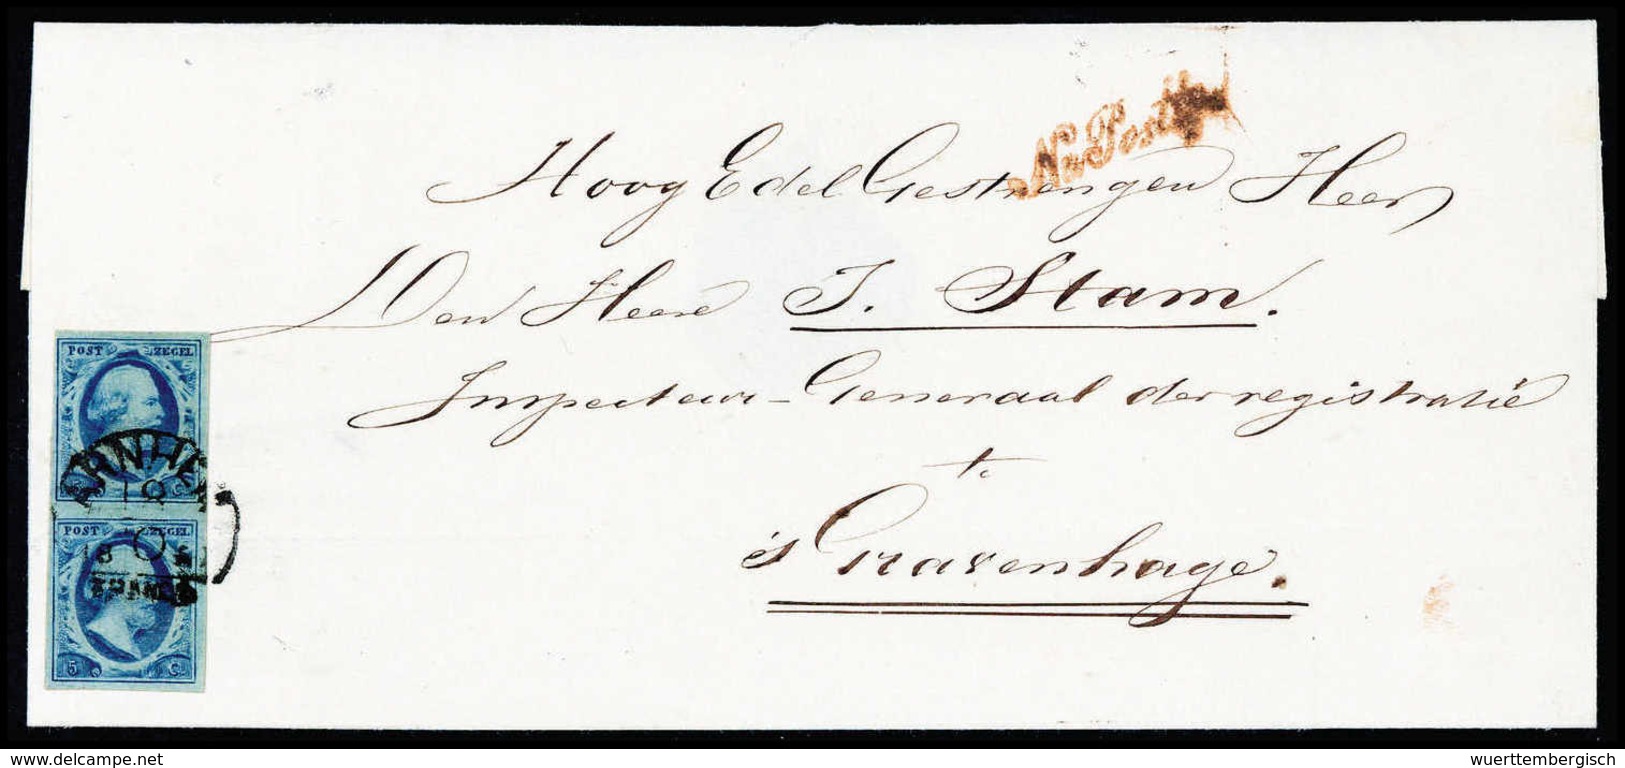 Na Posttyd
Hoog Edel Gestrengen Heer
Den Heere J. Stam.
Inspecteur-Generaal der registratie
te
's Gravenhage.
POST ZEGEL
ARNHEM
18
5 C
POST ZEGEL
18
FRANCO
5 C
www.delcampe.net
wuerttembergisch